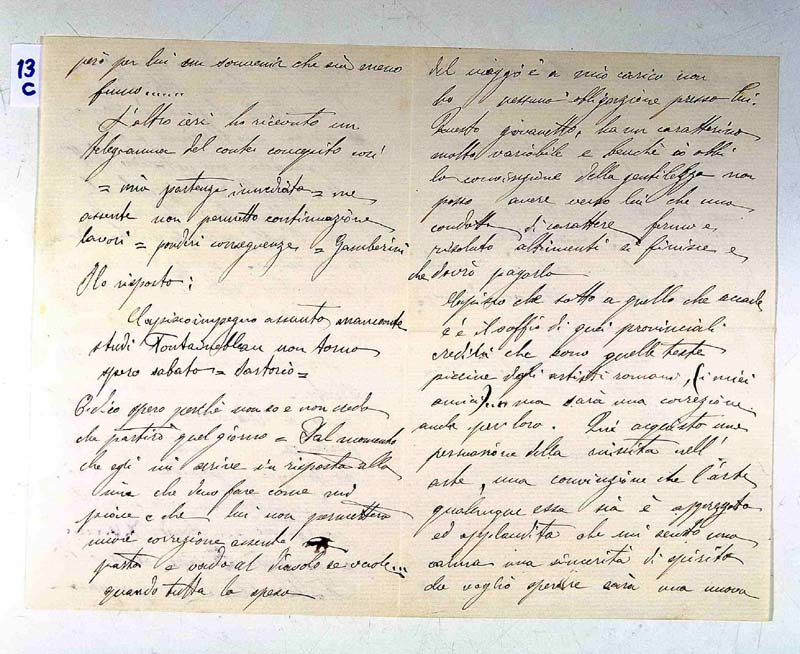 13
C
però per lui un souvenir che sia meno
fumo.....
L'altro ieri ho ricevuto un
telegramma del conte concepito così
= mia partenza immediata = me
assente non permetto continuazione
lavori = ponderi conseguenze = Gamberini
Ho risposto:
Capisco impegno assunto mancante
studi Fontainebleau non torno
spero sabato = Sartorio =
E dico spero perchè non so e non credo
che partirò quel giorno = Dal momento
che egli mi scrive in risposta alla
mia che devo fare come mi
piace e che lui non permetterà
mie correzione assente
parta e vada al diavolo se vuole...
quando tutta la spesa
del viaggio è a mio carico non
ho nessuna obbligazione presso lui.
Questo giovanetto, ha un caratterino
molto variabile e benchè io abbi
la convinzione della gentilezza non
posso avere verso lui che una
condotta di carattere fermo e
risoluto altrimenti si finisce e
che dovrò pagarla
Capisco che sotto a quello che accade
c'è il soffio di quei provinciali
creduti che sono quelle teste
piccine degli artisti romani, (i miei
amici)... ma sarà una correzione
anche per loro. Qui acquisto una
persuasione della riuscita nell'
arte, una convinzione che l'arte
qualunque essa sia è apprezzata
ed applaudita che mi sento una
calma una sincerità di spirito
che voglio sperare sarà una nuova